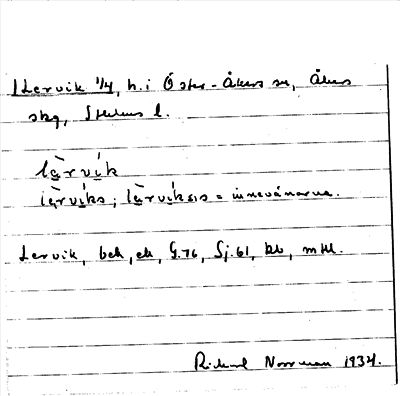 Lervik ¼, h. i Öster-Åkers sn, Åkers
skg, Sthlms l.
lærvik
lærviks; lærviksis = innevånarna.
Lervik, bek, ek, G.76, Sj.61, kb, mtl.
Rikard Norrman 1934.